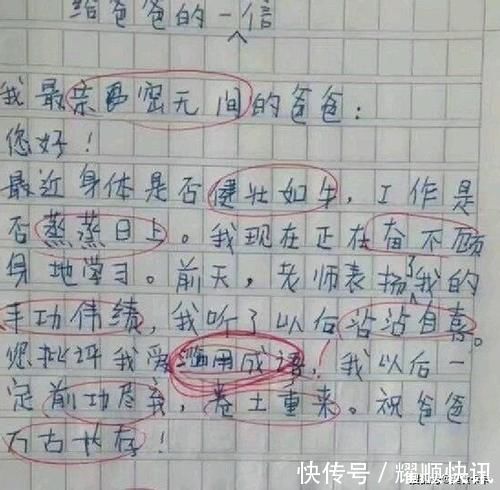 给爸爸的一信
我最亲密无间的爸爸:
您好!
最近身体是否健壮如牛,工作是
否蒸蒸日上。我现在正在奋不顾
身地学习。前天,老师表扬了我的
丰功伟绩,我听了以后沾沾自喜。
您批评我爱滥用成语!我以后一
定前功尽弃,卷土重来。祝爸爸
万古长存!
快传号/耀顺快讯